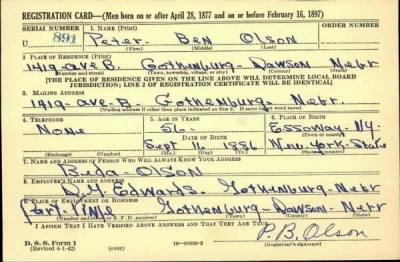 REGISTRATION CARD—(Men born on or after April 28, 1877 and on or before February 16, 1897)
SERIAL NUMBER 1. NAME (Print) ORDER NUMBER
U 891 Peter Ben Olson
(First) (Middle) (Last)
2. PLACE OF RESIDENCE (Print)
1419-Ave B. Gothenburg-Dawson Nebr
(Number and street) (Town, township, village, or city) (County) (State)
[THE PLACE OF RESIDENCE GIVEN ON THE LINE ABOVE WILL DETERMINE LOCAL BOARD
JURISDICTION; LINE 2 OF REGISTRATION CERTIFICATE WILL BE IDENTICAL]
3. MAILING ADDRESS
1419-ave-B- Gothenburg Nebr.
[Mailing address if other than place indicated on line 2. If same insert word same]
4. TELEPHONE 5. AGE IN YEARS 6. PLACE OF BIRTH
None 56- NY.
DATE OF BIRTH (Town or county)
Sept 16 1886 New-York-State
(Exchange) (Number) (Mo.) (Day) (Yr.) (State or country)
7. NAME AND ADDRESS OF PERSON WHO WILL ALWAYS KNOW YOUR ADDRESS
Beda-Olson
8. EMPLOYER'S NAME AND ADDRESS
Edwards. Gothenburg-Nebr
9. PLACE OF EMPLOYMENT OR BUSINESS
Part Time Gothenburg-Dawson-Nebr
(Number and street or R. F. D. number) (Town) (County) (State)
I AFFIRM THAT I HAVE VERIFIED ABOVE ANSWERS AND THAT THEY ARE TRUE.
P. B. Olson
D. S. S. Form 1
(Revised 4-1-42) (over) (Registrant's signature)